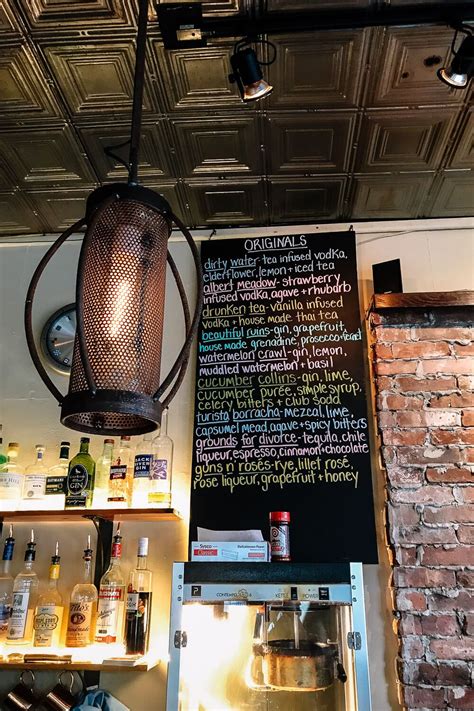 ORIGINALS
dirty water-tea infused vodka,
elderflower, lemon + iced tea
albert meadow-strawberry
infused vodka, agave + rhubarb
drunken tea-vanilla infused
vodka + house made thai tea
beautiful ruins-gin, grapefruit,
house made grenadine, prosecco+fennel
watermelon crawl-gin, lemon,
muddled watermelon + basil
cucumber collins-gin, lime,
cucumber purée, simple syrup,
celery bitters + club soda
turista borracha-mezcal, lime,
capsumel mead, agave + spicy bitters
grounds for divorce-tequila, chile
liqueur, espresso, cinnamon + chocolate
guns n' roses-rye, lillet rosé,
rose liqueur, grapefruit + honey
Sysco
Classic
GIN
Tito's